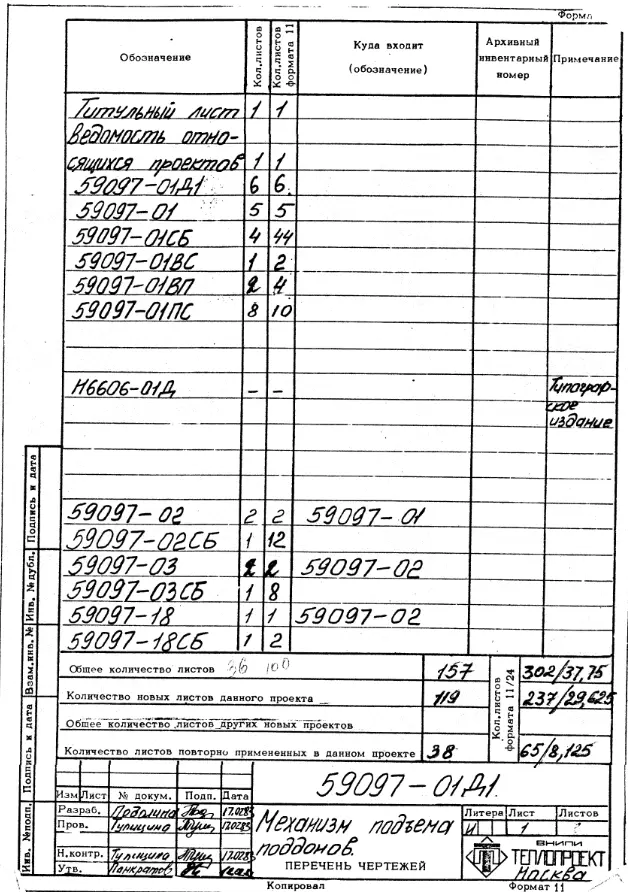 Форма
Обозначение Кол.листов Кол.листов формата 11 Куда входит (обозначение) Архивный инвентарный номер Примечание
Титульный лист 1 1
Ведомость отно-
сящихся проектов 1 1
59097-01Д1 6 6
59097-01 5 5
59097-01СБ 4 44
59097-01ВС 1 2
59097-01ВП 2 4
59097-01ПС 8 10
Н6606-01Д - - Типограф-
ское
издание
59097-02 2 2 59097-01
59097-02СБ 1 12
59097-03 2 2 59097-02
59097-03СБ 1 8
59097-18 1 1 59097-02
59097-18СБ 1 2
Общее количество листов 157 302/37,75
Количество новых листов данного проекта 119 237/29,625
Общее количество листов других новых проектов
Количество листов повторно примененных в данном проекте 38 65/8,125
Кол.листов формата 11/24
Подпись и дата
Инв. № дубл.
Взам.инв. №
Подпись и дата
Инв. № подл.
59097-01Д1
Изм Лист № докум. Подп. Дата
Разраб.
Пров. Тупицина
Н.контр. Тупицина
Утв. Панкратов
Механизм подъема
поддонов.
ПЕРЕЧЕНЬ ЧЕРТЕЖЕЙ
Литера Лист Листов
И 1
ВНИПИ
ТЕПЛОПРОЕКТ
Москва
Копировал Формат 11